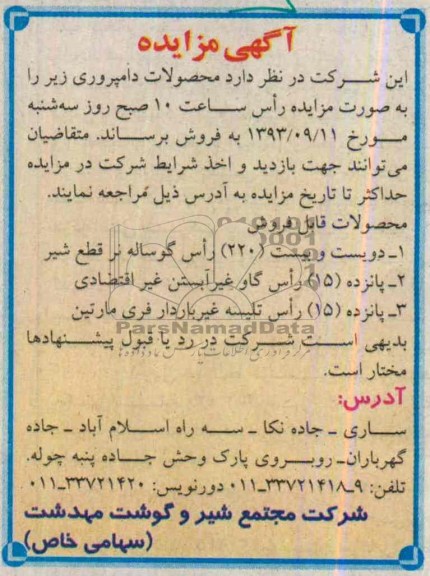 آگهی مزایده
این شرکت در نظر دارد محصولات دامپروری زیر را
به صورت مزایده رأس ساعت ۱۰ صبح روز سه‌شنبه
مورخ ۱۳۹۳/۰۹/۱۱ به فروش برساند. متقاضیان
می‌توانند جهت بازدید و اخذ شرایط شرکت در مزایده
حداکثر تا تاریخ مزایده به آدرس ذیل مراجعه نمایند.
محصولات قابل فروش
۱ـ دویست و بیست (۲۲۰) رأس گوساله نر قطع شیر
۲ـ پانزده (۱۵) رأس گاو غیرآبستن غیر اقتصادی
۳ـ پانزده (۱۵) رأس تلیسه غیرباردار فری مارتین
ParsNamadData
بدیهی است شرکت در رد یا قبول پیشنهادها
مختار است.
آدرس:
ساری ـ جاده نکا ـ سه راه اسلام آباد ـ جاده
گهرباران ـ روبروی پارک وحش جاده پنبه چوله.
تلفن: ۹ـ۳۳۷۲۱۴۱۸ـ۰۱۱ دورنویس: ۳۳۷۲۱۴۲۰ـ۰۱۱
شرکت مجتمع شیر و گوشت مهدشت
(سهامی خاص)